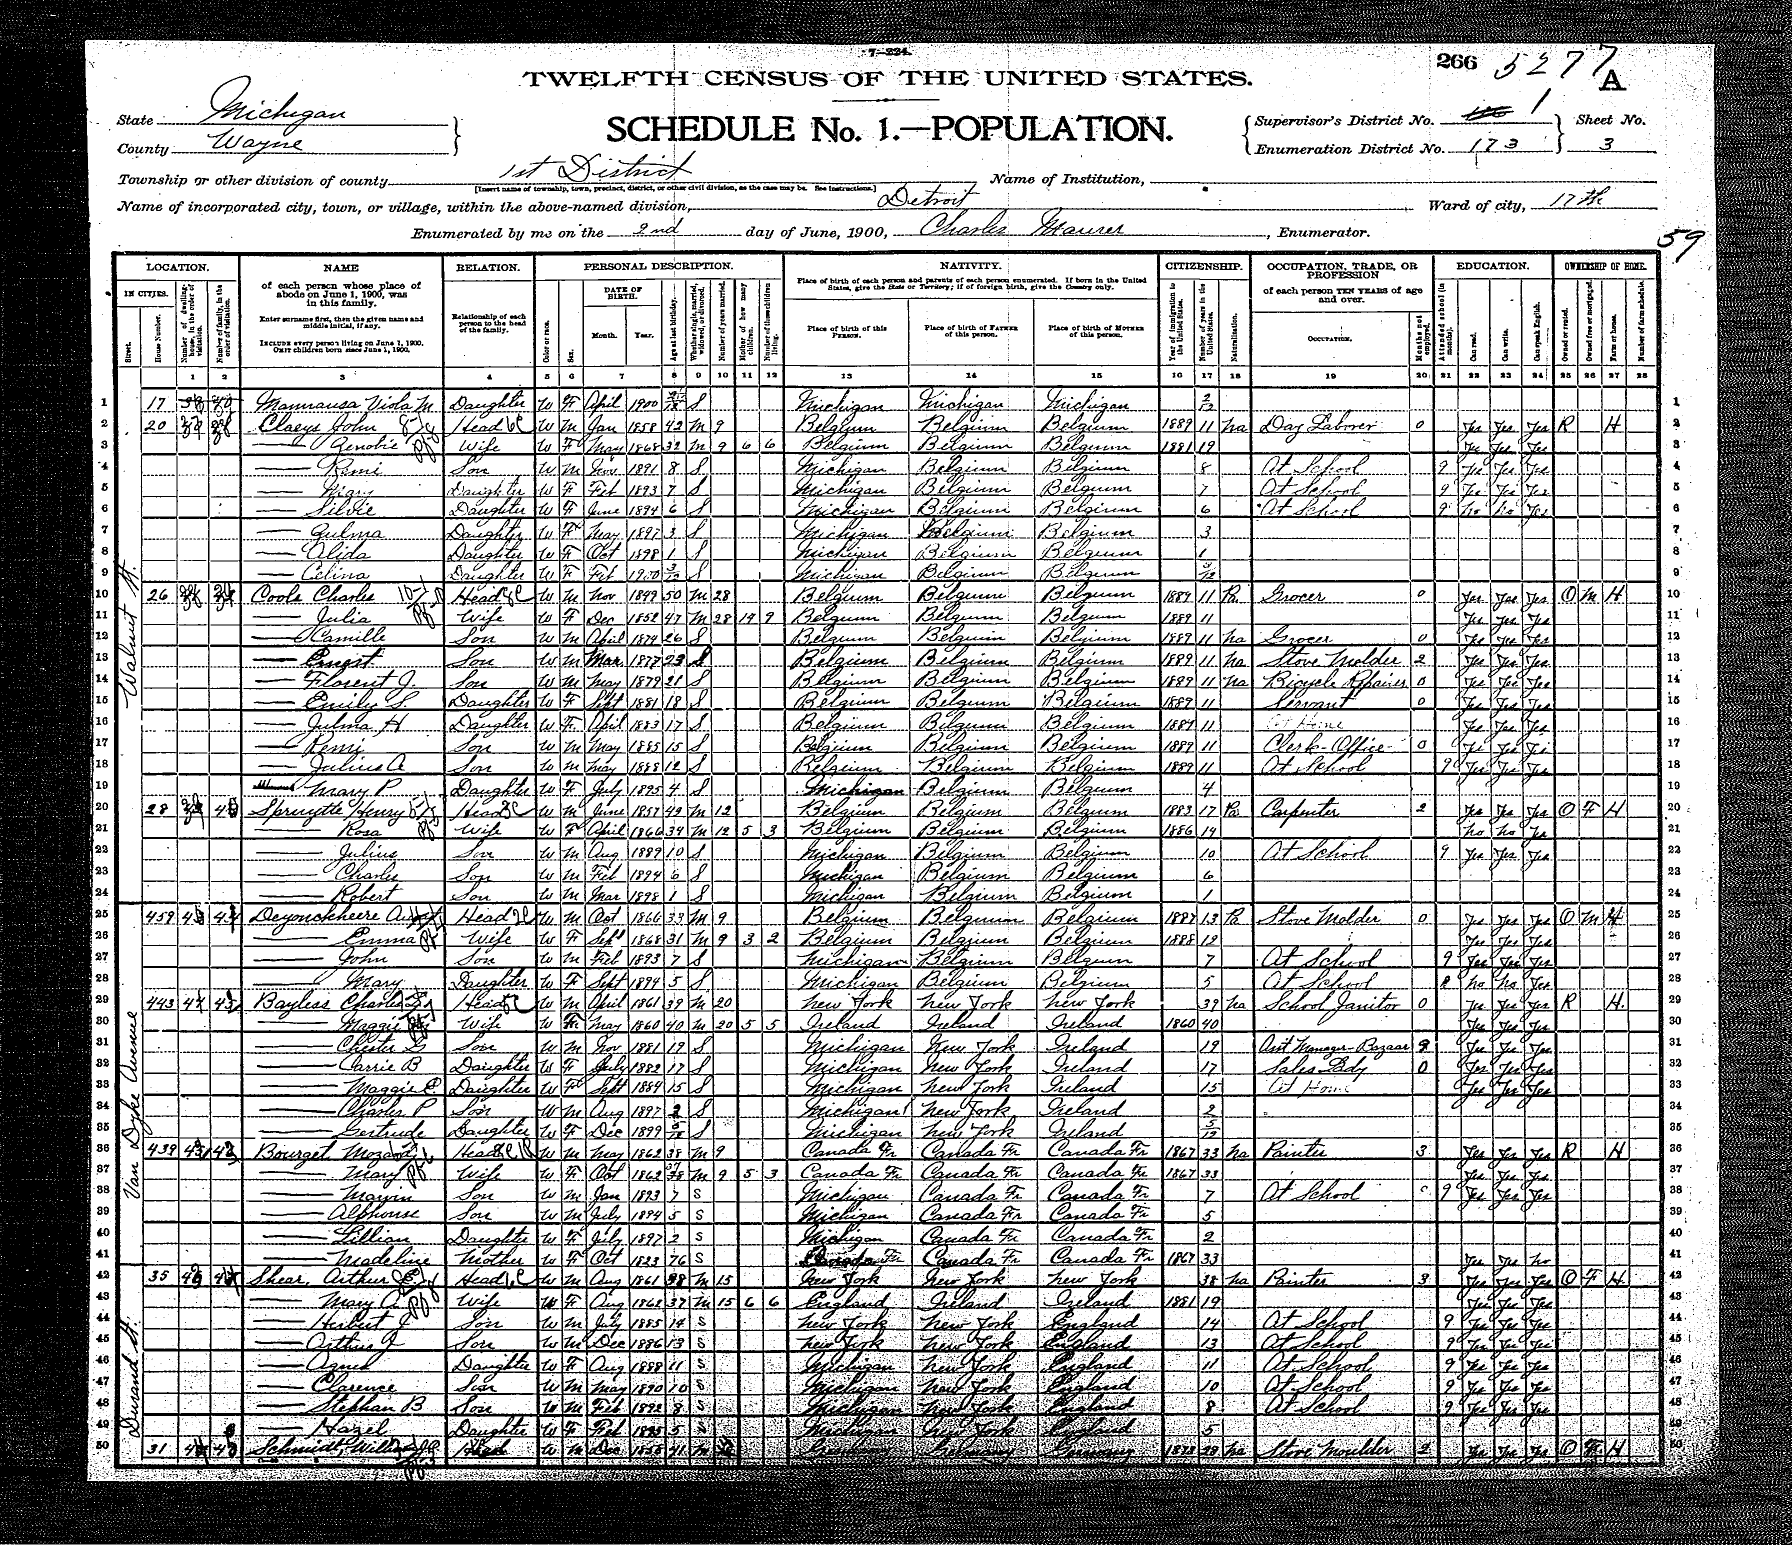 7—224.
266 5277
A
TWELFTH CENSUS OF THE UNITED STATES.
State Michigan
County Wayne
SCHEDULE No. 1.—POPULATION.
Supervisor's District No. 1
Enumeration District No. 173
Sheet No. 3
Township or other division of county 1st District
[Insert name of township, town, precinct, district, or other civil division, as the case may be. See instructions.]
Name of Institution,
Name of incorporated city, town, or village, within the above-named division, Detroit
Ward of city, 17th
Enumerated by me on the 2nd day of June, 1900, Charles Maurer, Enumerator.
59
LOCATION. NAME RELATION. PERSONAL DESCRIPTION. NATIVITY. CITIZENSHIP. OCCUPATION, TRADE, OR PROFESSION EDUCATION. OWNERSHIP OF HOME.
IN CITIES. of each person whose place of abode on June 1, 1900, was in this family.
Enter surname first, then the given name and middle initial, if any.
INCLUDE every person living on June 1, 1900. OMIT children born since June 1, 1900.
Relationship of each person to the head of the family.
DATE OF BIRTH. Month. Year.
Place of birth of each person and parents of each person enumerated. If born in the United States, give the State or Territory; if of foreign birth, give the Country only.
Place of birth of this PERSON. Place of birth of FATHER of this person. Place of birth of MOTHER of this person.
of each person TEN YEARS of age and over.
OCCUPATION.
1 2 3 4 5 6 7 8 9 10 11 12 13 14 15 16 17 18 19 20 21 22 23 24 25 26 27 28
Walnut St.
1 17 Viola M Daughter W F April 1900 S Michigan Michigan Michigan 2/12
2 20 Claeys John Head W M Jan 1858 42 M 9 Belgium Belgium Belgium 1889 11 Na Day Laborer 0 Yes Yes Yes R H
3 Wife W F May 1868 32 M 9 6 6 Belgium Belgium Belgium 1881 19 Yes Yes Yes
4 Remi Son W M Nov 1891 8 S Michigan Belgium Belgium 8 At School 9 Yes Yes Yes
5 Mary Daughter W F Feb 1893 7 S Michigan Belgium Belgium 7 At School 9 Yes Yes Yes
6 Silvie Daughter W F June 1894 6 S Michigan Belgium Belgium 6 At School 9 No No Yes
7 Daughter W F May 1897 3 S Michigan Belgium Belgium 3
8 Alida Daughter W F Oct 1898 1 S Michigan Belgium Belgium 1
9 Celina Daughter W F Feb 1900 3/12 S Michigan Belgium Belgium 3/12
10 26 Cools Charles Head W M Nov 1849 50 M 28 Belgium Belgium Belgium 1889 11 Pa Grocer 0 Yes Yes Yes O M H
11 Julia Wife W F Dec 1852 47 M 28 14 9 Belgium Belgium Belgium 1889 11 Yes Yes Yes
12 Camille Son W M April 1874 26 S Belgium Belgium Belgium 1889 11 Na Grocer 0 Yes Yes Yes
13 Ernest Son W M Mar 1877 23 S Belgium Belgium Belgium 1889 11 Na Stove Molder 2 Yes Yes Yes
14 Florent J. Son W M May 1879 21 S Belgium Belgium Belgium 1889 11 Na Bicycle Repairer 0 Yes Yes Yes
15 Emily S. Daughter W F Sept 1881 18 S Belgium Belgium Belgium 1889 11 Servant 0 Yes Yes Yes
16 Julma H Daughter W F April 1883 17 S Belgium Belgium Belgium 1889 11 At Home Yes Yes Yes
17 Remi Son W M May 1885 15 S Belgium Belgium Belgium 1889 11 Clerk-Office 0 Yes Yes Yes
18 Julius A Son W M May 1888 12 S Belgium Belgium Belgium 1889 11 At School 9 Yes Yes Yes
19 Mary P Daughter W F July 1895 4 S Michigan Belgium Belgium 4
20 28 Spruytte Henry Head W M June 1857 M 12 Belgium Belgium Belgium 1883 17 Pa Carpenter 2 Yes Yes Yes O F H
21 Rosa Wife W F April 1866 34 M 12 5 3 Belgium Belgium Belgium 1886 14 No No Yes
22 Julius Son W M Aug 1889 10 S Michigan Belgium Belgium 10 At School 9 Yes Yes Yes
23 Charles Son W M Feb 1894 6 S Michigan Belgium Belgium 6
24 Robert Son W M Mar 1898 1 S Michigan Belgium Belgium 1
Van Dyke Avenue
25 459 Deyonckheere Head W M Oct 1866 33 M 9 Belgium Belgium Belgium 1887 13 Pa Stove Molder 0 Yes Yes Yes O M H
26 Emma Wife W F Sept 1868 31 M 9 3 2 Belgium Belgium Belgium 1888 12 Yes Yes Yes
27 John Son W M Feb 1893 7 S Michigan Belgium Belgium 7 At School 9 Yes Yes Yes
28 Mary Daughter W F Sept 1894 5 S Michigan Belgium Belgium 5 At School No No Yes
29 443 Bayliss Charles Head W M April 1861 39 M 20 New York New York New York 39 Na School Janitor 0 Yes Yes Yes R H.
30 Maggie Wife W F May 1860 40 M 20 5 5 Ireland Ireland Ireland 1860 40 Yes Yes Yes
31 Chester Son W M Nov 1881 19 S Michigan New York Ireland 19 Asst Manager-Bazaar Yes Yes Yes
32 Carrie B Daughter W F July 1882 17 S Michigan New York Ireland 17 Sales Lady 0 Yes Yes Yes
33 Maggie E Daughter W F Sept 1884 15 S Michigan New York Ireland 15 At Home Yes Yes Yes
34 Charles P Son W M Aug 1897 2 S Michigan New York Ireland 2
35 Gertrude Daughter W F Dec 1899 S Michigan New York Ireland 5/12
36 439 Bourget Head W M May 1862 38 M 9 Canada Fr Canada Fr Canada Fr 1867 33 Na Painter 3 Yes Yes Yes R H
37 Mary Wife W F Oct 1862 M 9 5 3 Canada Fr Canada Fr Canada Fr 1867 33 Yes Yes Yes
38 Son W M Jan 1893 7 S Michigan Canada Fr Canada Fr 7 At School 9 Yes Yes Yes
39 Alphonse Son W M July 1894 5 S Michigan Canada Fr Canada Fr 5
40 Lillian Daughter W F July 1897 2 S Michigan Canada Fr Canada Fr 2
41 Madeline Mother W F Oct 1823 76 S Canada Fr Canada Fr Canada Fr 1867 33 Yes Yes No
Durand St.
42 35 Shear, Arthur Head W M Aug 1861 38 M 15 New York New York New York 38 Na Painter 3 Yes Yes Yes O F H
43 Mary A. Wife W F Aug 1862 37 M 15 6 6 England Ireland Ireland 1881 19 Yes Yes Yes
44 Herbert J Son W M July 1885 14 S New York New York England 14 At School 9 Yes Yes Yes
45 Arthur J Son W M Dec 1886 13 S New York New York England 13 At School 9 Yes Yes Yes
46 Agnes Daughter W F Aug 1888 11 S Michigan New York England 11 At School 9 Yes Yes Yes
47 Clarence Son W M May 1890 10 S Michigan New York England 10 At School 9 Yes Yes Yes
48 Stephan B Son W M Feb 1892 8 S Michigan New York England 8 At School 9 Yes Yes Yes
49 Hazel Daughter W F Feb 1895 5 S Michigan New York England 5
50 31 Schmidt Head W M Dec 1858 41 M Germany Germany Germany Na Stove Moulder 2 Yes Yes Yes O F H